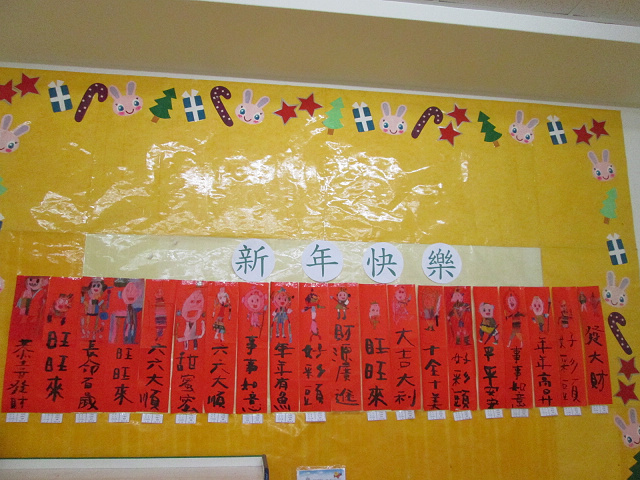 新年快樂
恭喜發財
旺旺來
長命百歲
旺旺來
六六大順
六六大順
事事如意
年年有魚
好彩頭
財源廣進
旺旺來
大吉大利
十全十美
好彩頭
平平安安
事事如意
年年高升
好彩頭
發大財